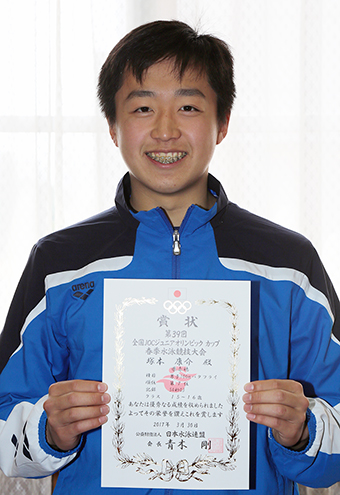 arena
賞状
第39回
全国JOCジュニアオリンピック カップ
春季水泳競技大会
塚本 康介 殿
あなたは優秀なる成績を収められました
よってその栄誉を讃えこれを賞します
2017年3月30日
公益財団法人 日本水泳連盟
会長 青木 剛